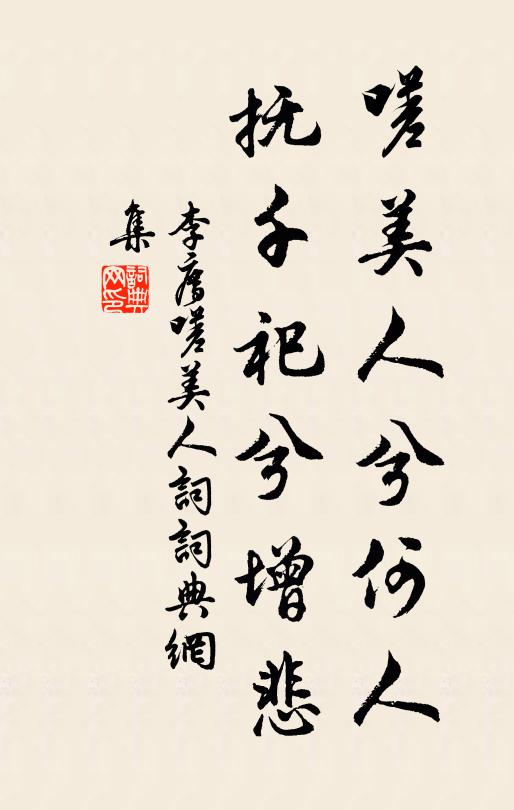 嗟美人兮何人
抚千祀兮增悲
李廌嗟美人詞詞典網
集
詞典
网印